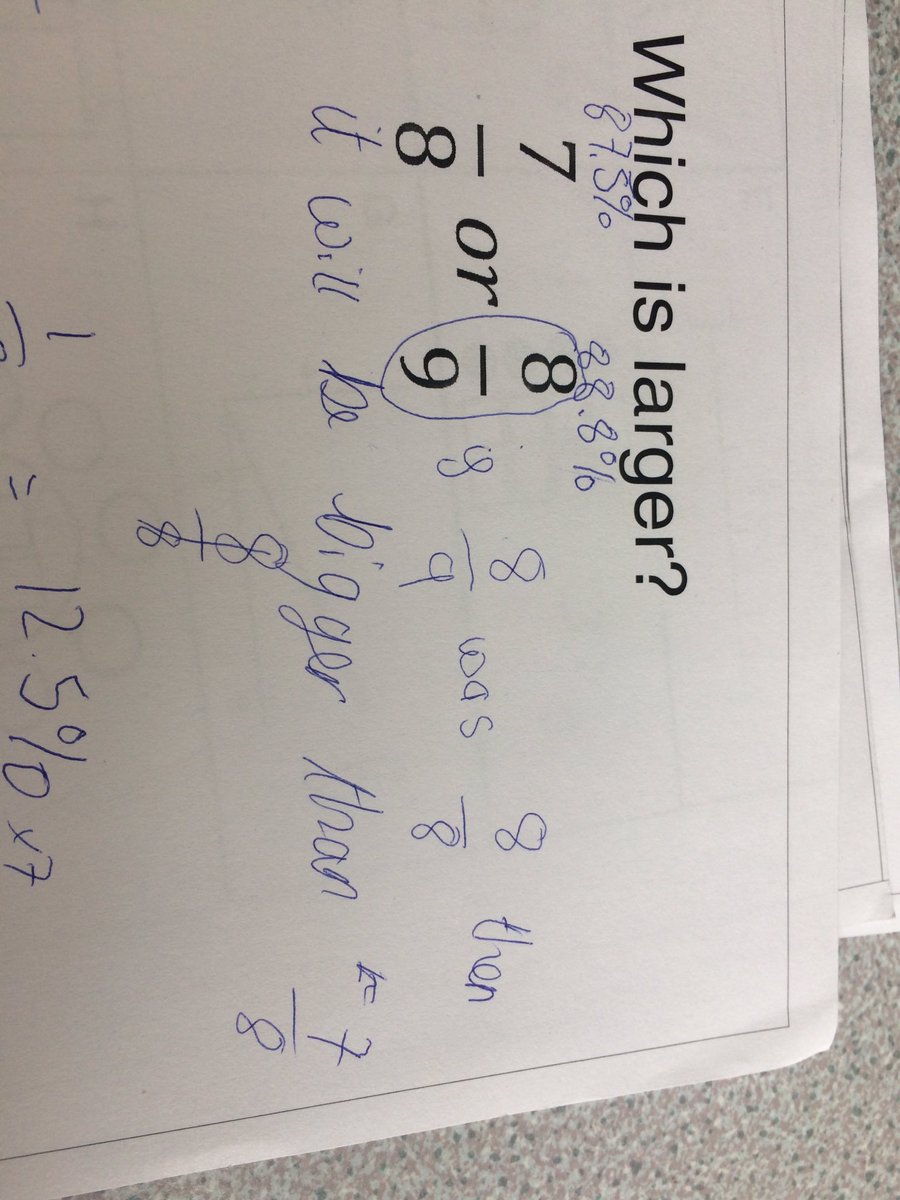 Which is larger?
87.5% 88.8%
7/8 or 8/9 is 8/9 was 8/8 then
it will be bigger than 7/8
8/8
1/8 = 12.5% ×7